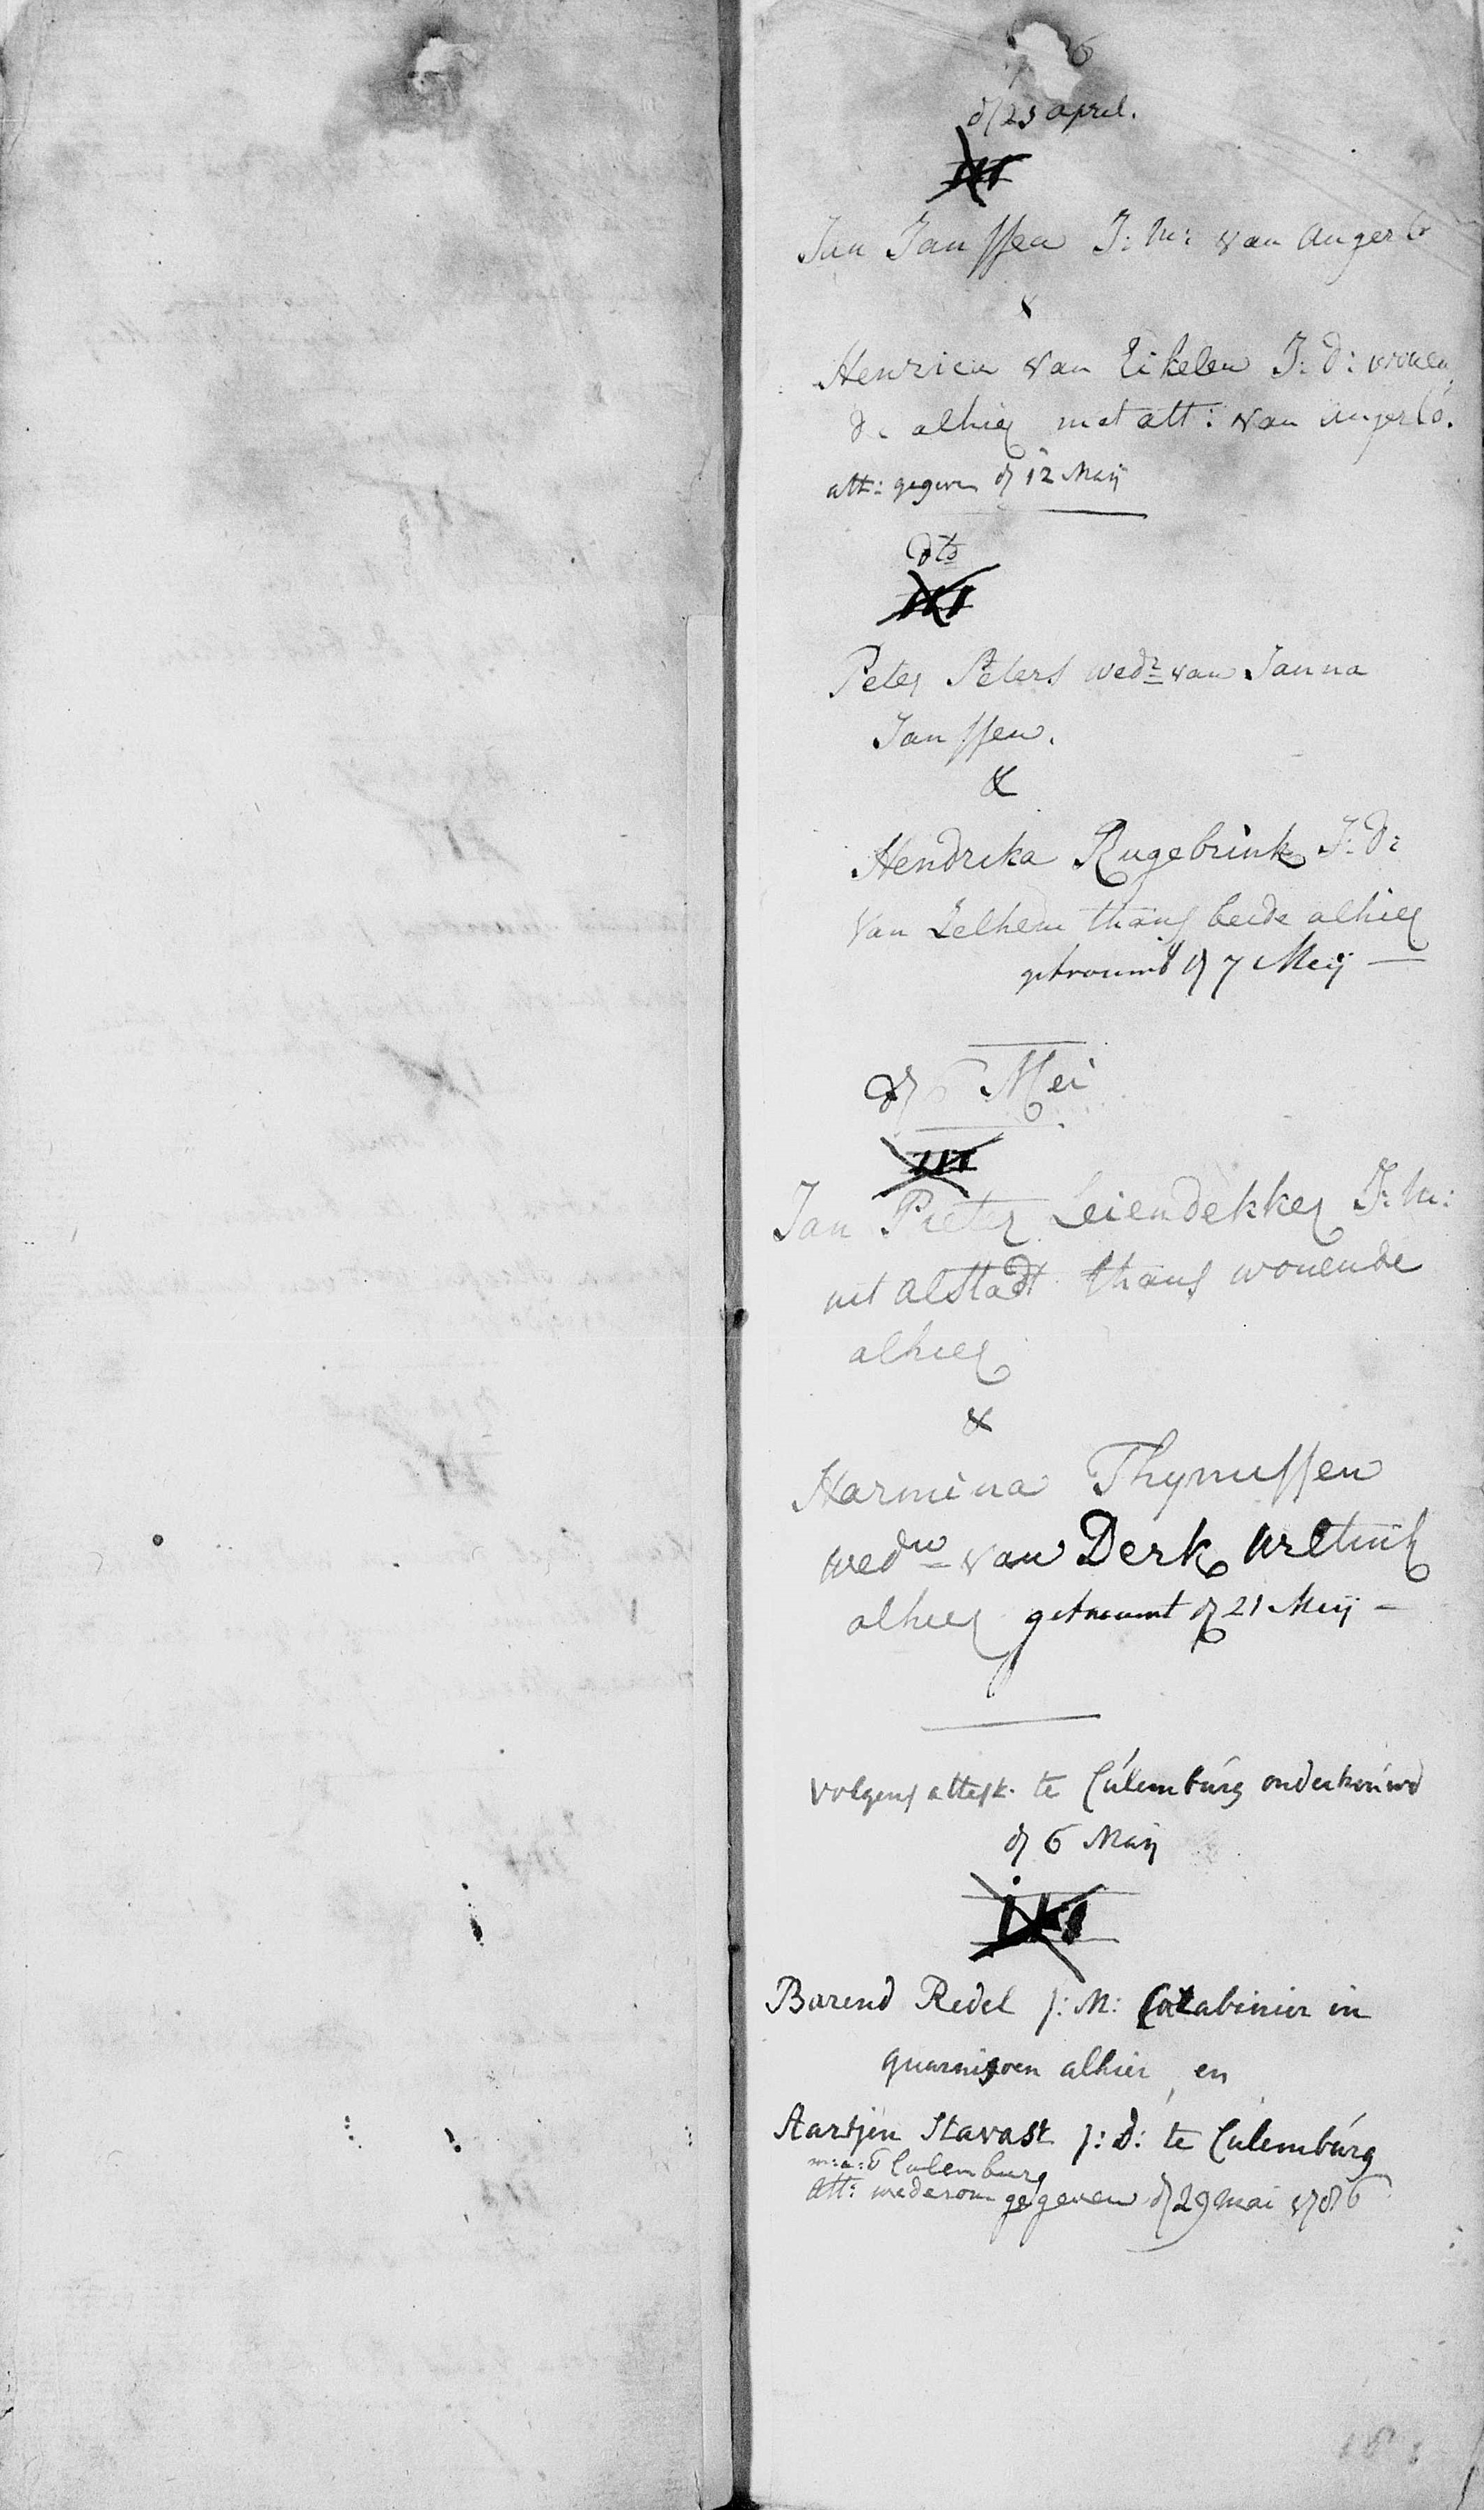 6
d 23 april.
Jan Janssen J: M: van Angerlo
&
Henrica van Eikelen J: d: wonen
de alhier met att: van Angerlo.
att: gegeven d 12 Maij
dto
Peter Peters wedr van Janna
Janssen.
&
Hendrika Rugebrink J: d:
van Zelhem thans beide alhier
getrouwt d 7 Meij
d 6 Mei
Jan Pieter Leiendekker J: M:
uit Alstadt thans wonende
alhier
&
Harmina Thynussen
wedw van Derk
alhier getrouwt d 21 Meij
Volgens attest. te Culemburg ondertrouwd
d 6 Maij
Barend Redel J: M: Carabinier in
guarnisoen alhier, en
Aartjen Stavast J: d: te Culemburg
Culemburg
att: wederom gegeven d 29 mai 1786